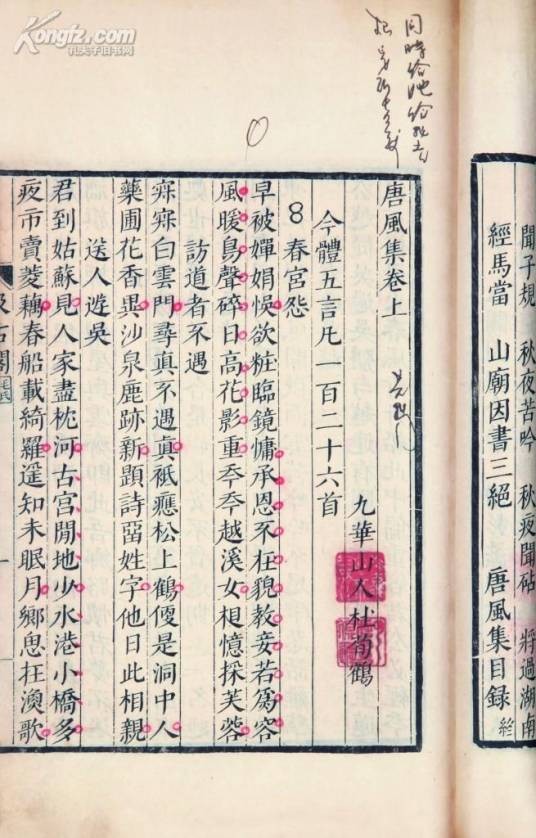 Kongfz.com
孔夫子旧书网
聞子規　秋夜苦吟　秋夜聞砧　將過湖南
經馬當　山廟因書三絕　唐風集目録　終
唐風集卷上
九華山人杜荀鶴
今體五言凡一百二十六首
8 春宮怨
早被嬋娟悞欲粧臨鏡慵承恩不在貌教妾若爲容
風暖鳥聲碎日高花影重秊秊越溪女相憶採芙蓉
訪道者不遇
寂寂白雲門尋真不遇真祇應松上鶴便是洞中人
藥圃花香異沙泉鹿跡新題詩畱姓字他日此相親
送人遊吳
君到姑蘇見人家盡枕河古宮閒地少水港小橋多
夜市賣菱藕春船載綺羅遥知未眠月鄉思在漁歌
汲古閣